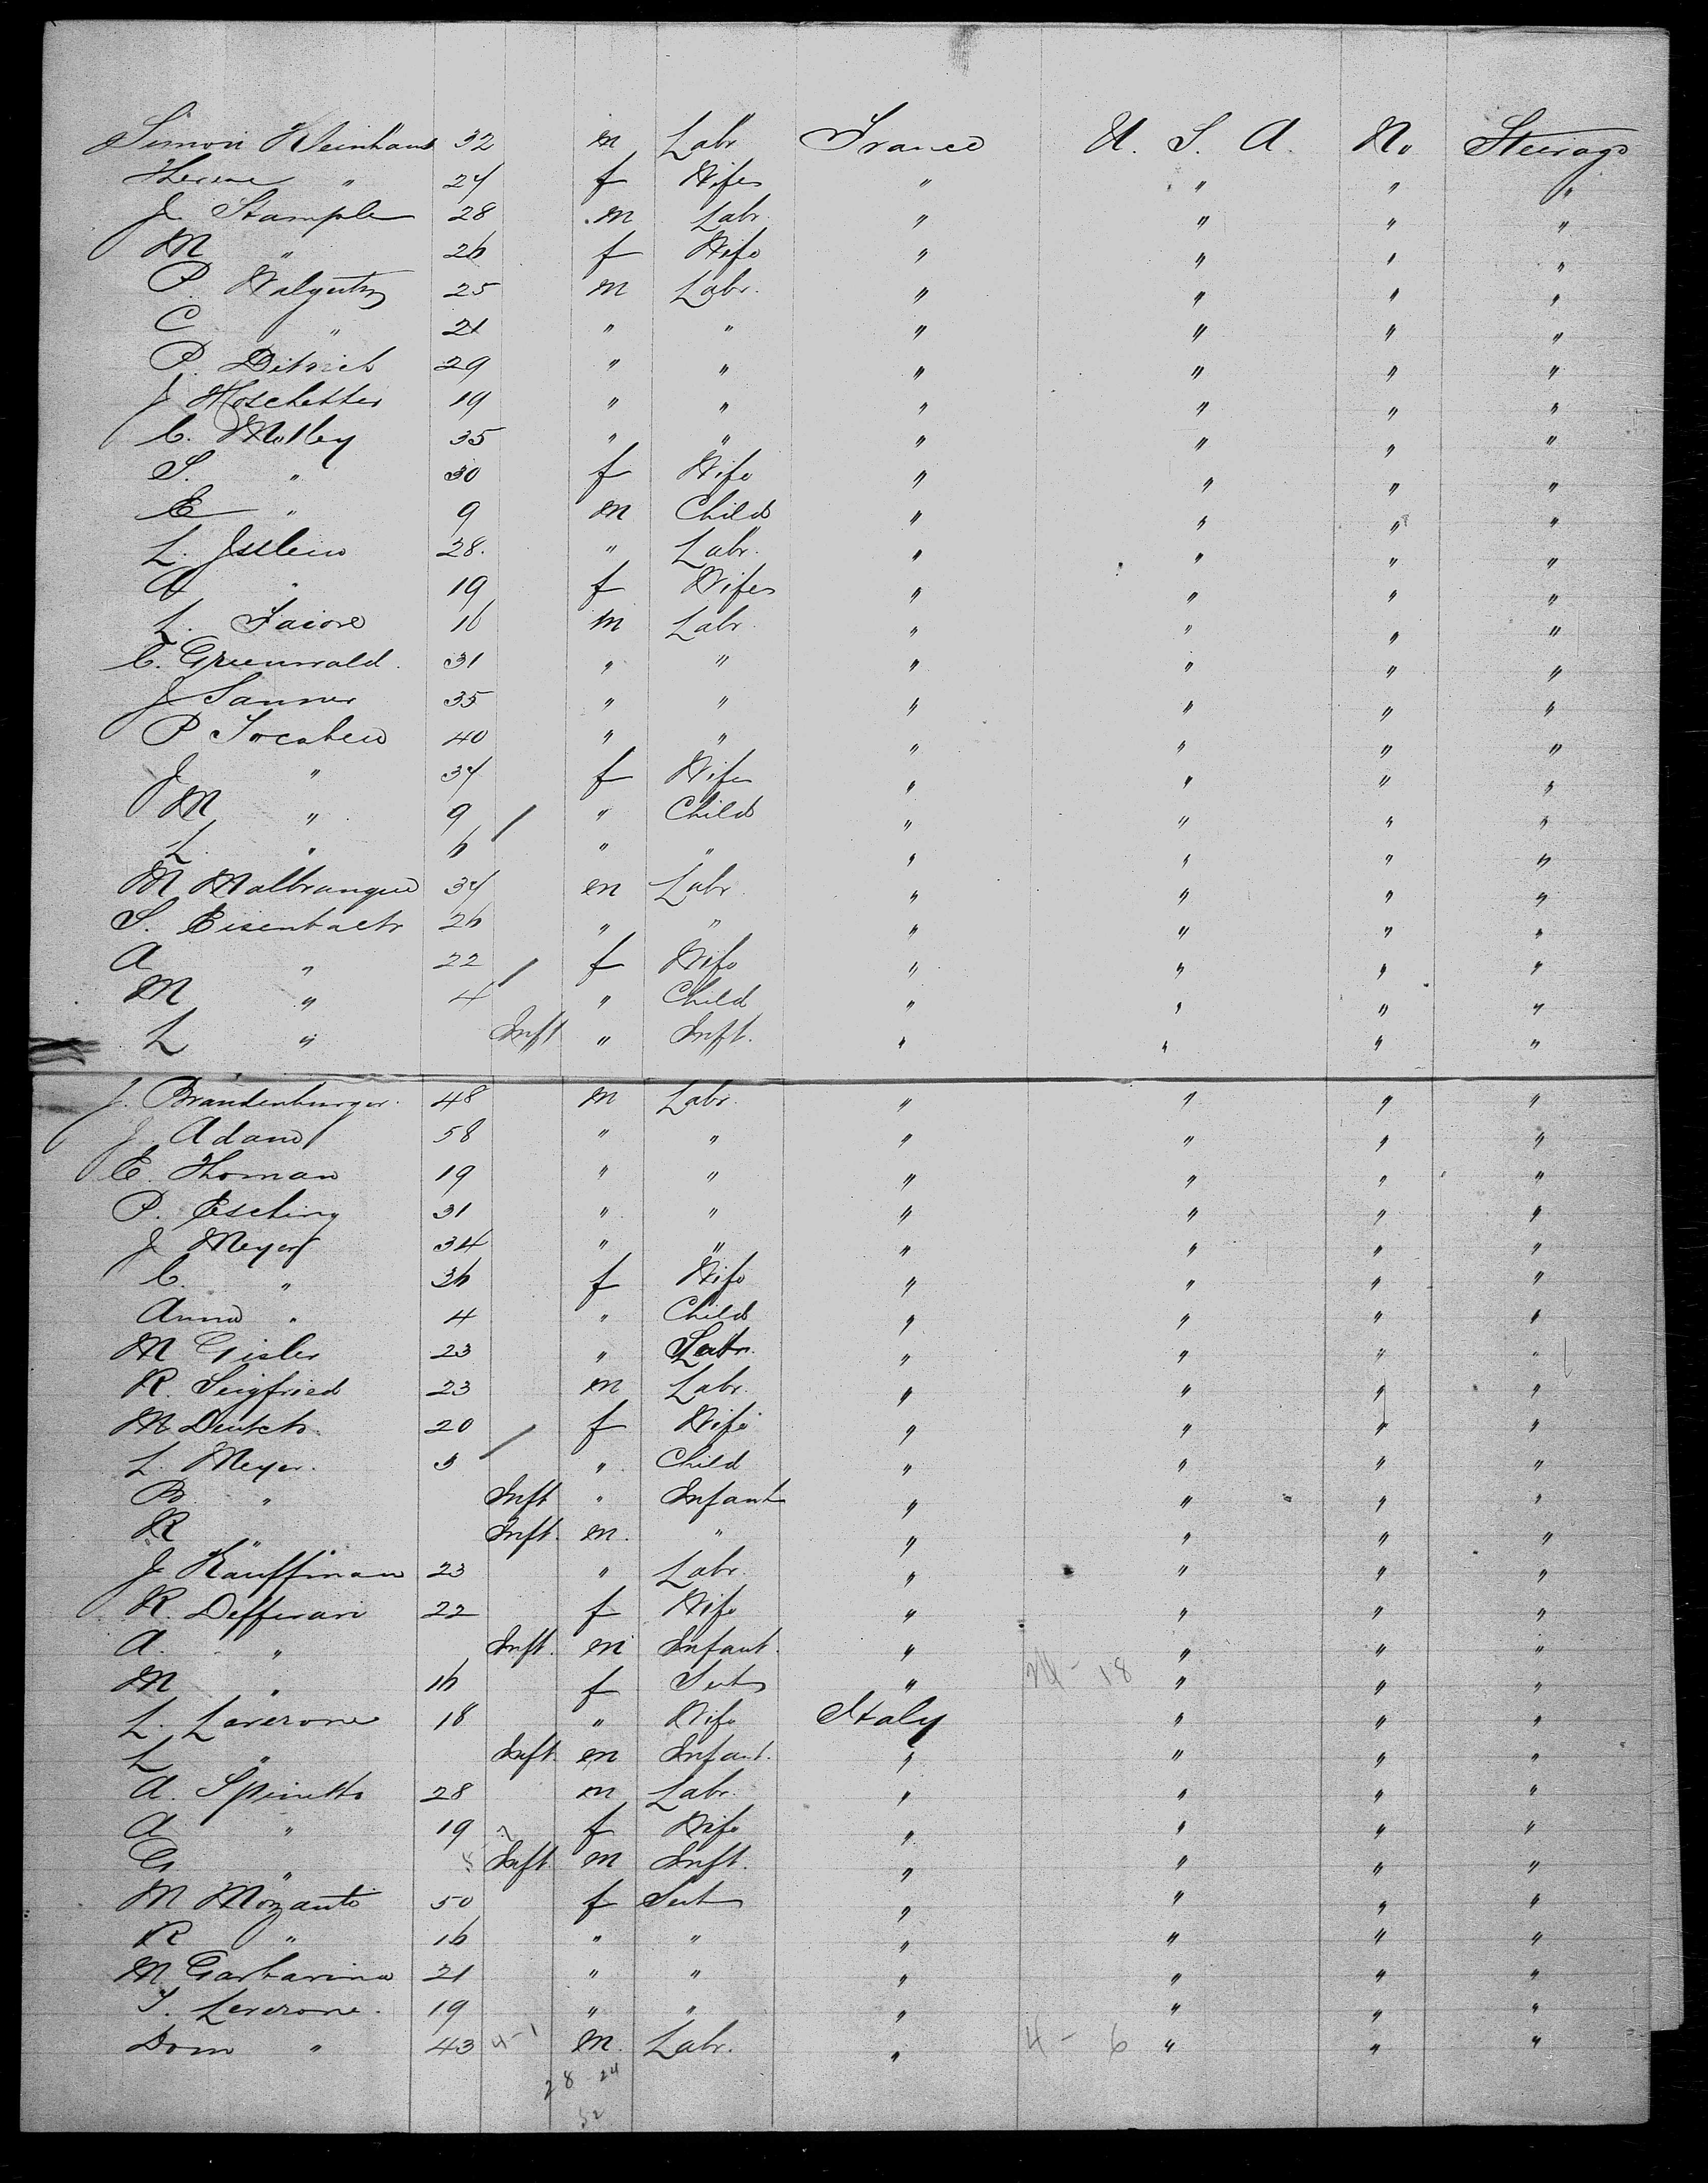 Simon Kleinhans 32 m Labr France U. S. A. No Steerage
Therese " 24 f Wife " " " "
J. Stample 28 m Labr " " " "
M " 26 f Wife " " " "
P. 25 m Labr. " " " "
C " 21 " " " " " "
P. Ditrich 29 " " " " " "
J Hoschetter 19 " " " " " "
C. Motley 35 " " " " " "
S. " 30 f Wife " " " "
E " 9 m Child " " " "
L. 28. " Labr. " " " "
" 19 f Wife " " " "
L. 16 m Labr " " " "
C. Greenwald. 31 " " " " " "
J Sanner 35 " " " " " "
P 40 " " " " " "
J " 34 f Wife " " " "
M " 9 " Child " " " "
L " 6 " " " " " "
M Malbranque 34 m Labr " " " "
S. Eisenbach 26 " " " " " "
A " 22 f Wife " " " "
M " 4 " Child " " " "
L " Inft " Inft. " " " "
J. Brandenburger. 48 m Labr. " " " "
J Adam 58 " " " " " "
E. Homan 19 " " " " " "
P. Esching 31 " " " " " "
J Meyer 34 " " " " " "
C. " 36 f Wife " " " "
Anna " 4 " Child " " " "
M Gisler 23 " " " " "
R. Seigfried 23 m Labr. " " " "
M Deutch. 20 f Wife " " " "
L. Meyer. 3 " Child " " " "
B " Inft " Infant " " " "
R " Inft. m. " " " " "
J Kauffman 23 " Labr. " " " "
R. Defferari 22 f Wife " " " "
A. " Inft. m Infant. " " " "
M " 16 f Sert " 24 - 18 " " "
L. Leverone 18 " Wife Italy " " "
L " Inft m Infant. " " " "
A. Spinetto 28 m Labr. " " " "
A " 19 f Wife " " " "
G " Inft. m Inft. " " " "
M Mozante 50 f Sert " " " "
R " 16 " " " " " "
M Garbarino 21 " " " " " "
S. Leverone. 19 " " " " " "
Dom " 43 4-1 m. Labr. " 4 - 6 " " "
28 24
52